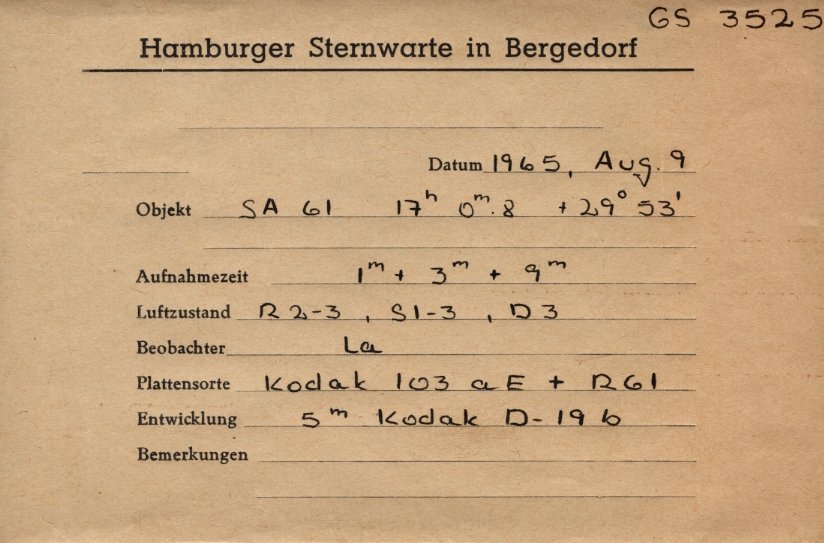 GS 3525
Hamburger Sternwarte in Bergedorf
Datum 1965, Aug. 9
Objekt SA 61 17ʰ 0ᵐ.8 +29° 53'
Aufnahmezeit 1ᵐ + 3ᵐ + 9ᵐ
Luftzustand R 2-3, S1-3, D3
Beobachter La
Plattensorte Kodak 103 aE + RG1
Entwicklung 5ᵐ Kodak D-19 b
Bemerkungen